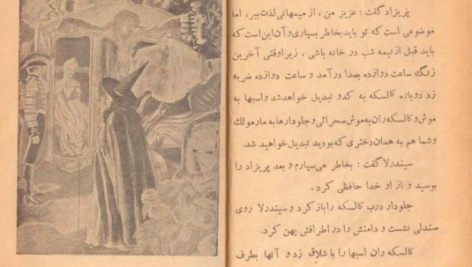 پریزاد گفت: عزیز من، از میهمانی لذت ببر، اما
موضوعی است که تو باید بخاطر بسپاری و آن این است که
باید قبل از نیمه شب در خانه باشی، زیرا وقتی آخرین
زنگ ساعت دوازده بصدا درآمد و ساعت دوازده ضربه
زد دوباره کالسکه به کدو تبدیل خواهد شد و اسبها به
موش و کالسکه ران به موش صحرائی و جلودارها به مارمولک
و شما هم به همان دختری که بودید تبدیل خواهید شد.
سیندرلا گفت: بخاطر می‌سپارم و بعد پریزاد را
بوسید و از او خدا حافظی کرد.
جلودار درب کالسکه را باز کرد و سیندرلا روی
صندلی نشست و دامنش را در اطرافش پهن کرد.
کالسکه ران اسبها را با شلاق زد و آنها بطرف